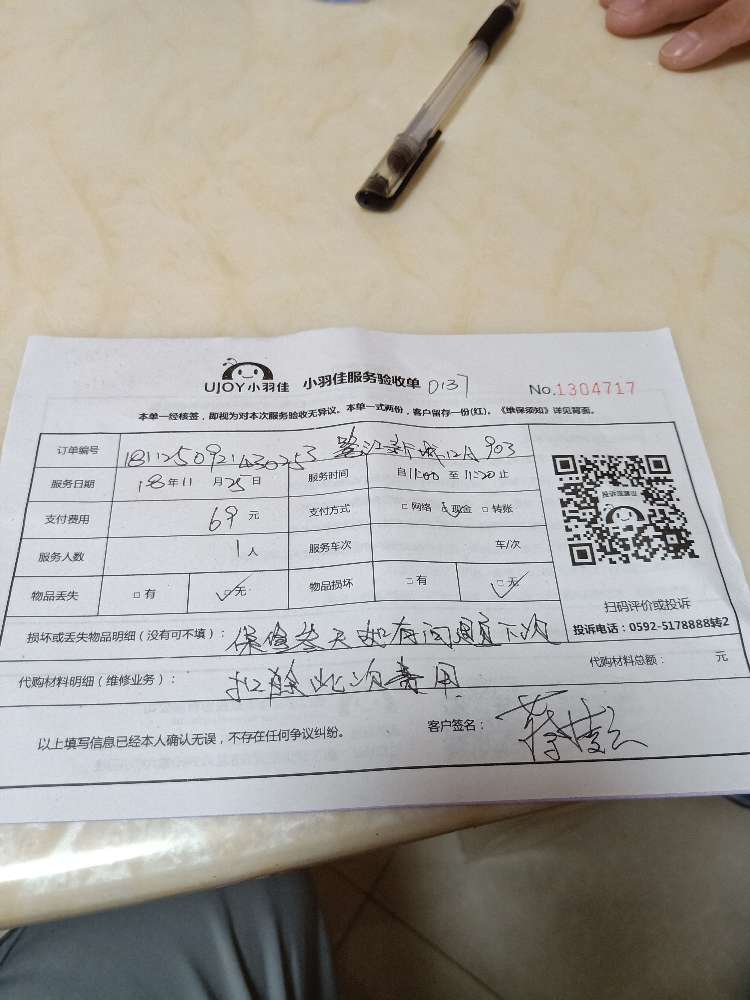 UJOY小羽佳 小羽佳服务验收单 0137 No.1304717
本单一经核签，即视为对本次服务验收无异议。本单一式两份，客户留存一份(红)。《维保须知》详见背面。
订单编号 1811250921430253 12A 903
服务日期 18年11月25日 服务时间 自11:00至11:20止
支付费用 69元 支付方式 □网络 □现金 □转账
服务人数 1人 服务车次 车/次
物品丢失 □有 □无 物品损坏 □有 □无
投诉或建议
扫码评价或投诉
投诉电话：0592-5178888转2
损坏或丢失物品明细（没有可不填）： 保修叁天如有问题下次
代购材料明细（维修业务）： 扣除此次费用 代购材料总额： 元
以上填写信息已经本人确认无误，不存在任何争议纠纷。 客户签名：